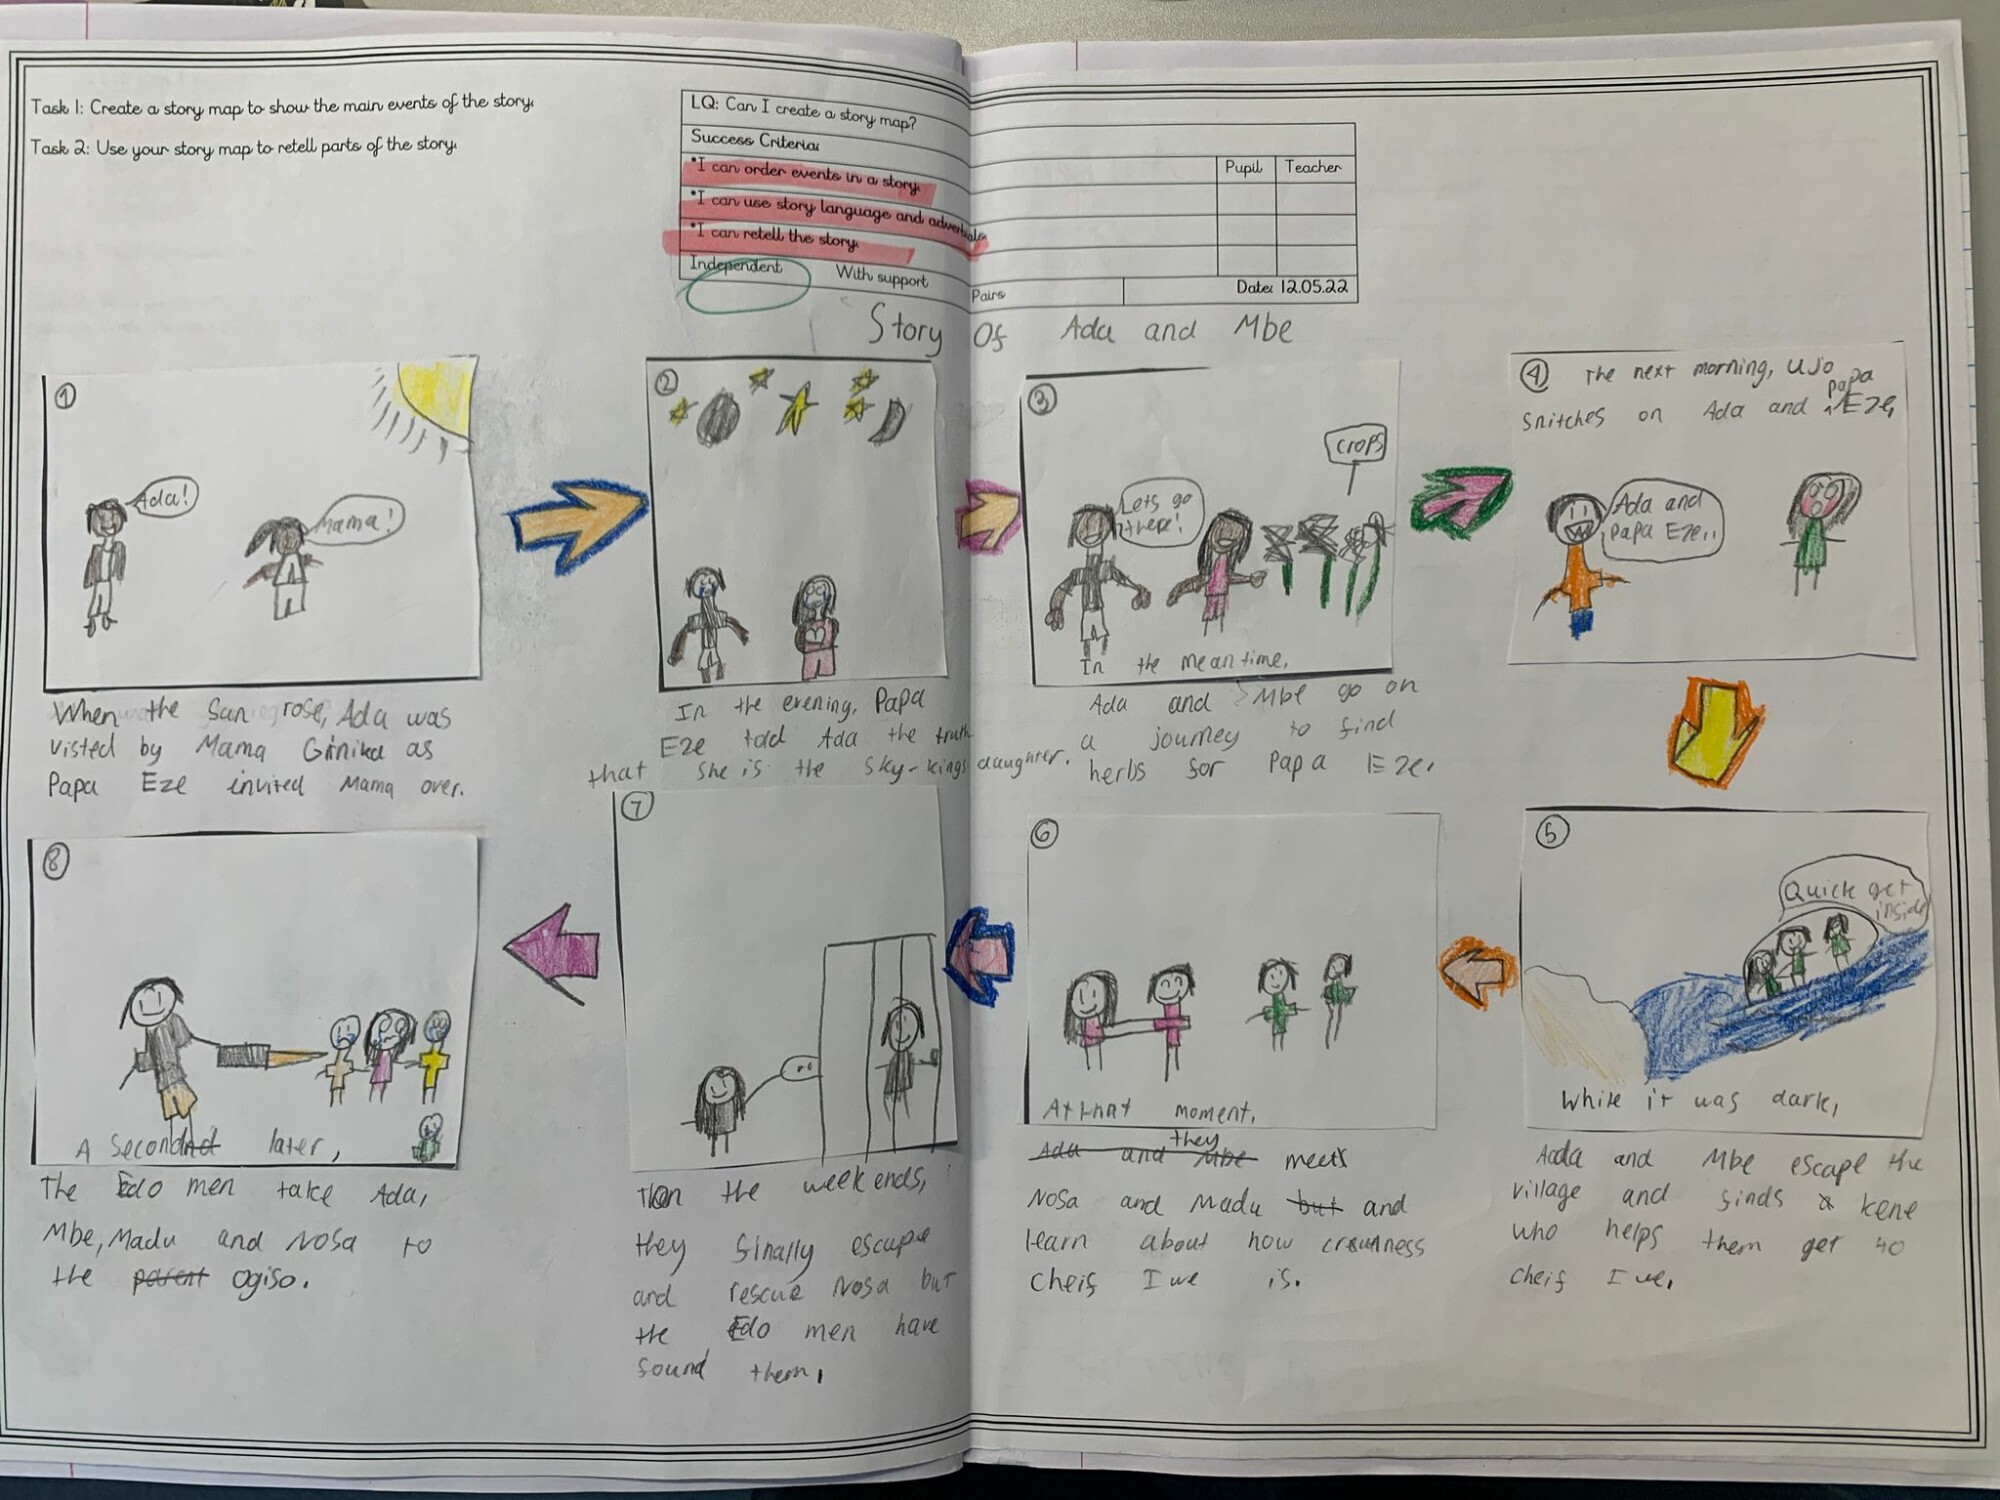 Task 1: Create a story map to show the main events of the story.
Task 2: Use your story map to retell parts of the story.
LQ: Can I create a story map?
Success Criteria:
Pupil Teacher
*I can order events in a story.
*I can use story language and adverbials.
*I can retell the story.
Independent With support Pairs Date: 12.05.22
Story Of Ada and Mbe
1
Ada!
Mama!
When the Sun rose, Ada was
visted by Mama Ginika as
Papa Eze invited Mama over.
2
In the evening, Papa
Eze told Ada the truth
that she is the sky-kings daughter.
3
Crops
Lets go
there!
In the meantime,
Ada and Mbe go on
a journey to find
herbs for Papa Eze.
4 The next morning, Ujo
snitches on Ada and papa Eze,
Ada and
papa Eze..
5
Quick get
inside
While it was dark,
Ada and Mbe escape the
village and finds kene
who helps them get to
cheif Iwe.
6
At that moment,
Ada and Mbe they meets
Nosa and Madu but and
learn about how
cheif Iwe is.
7
On the week ends,
they finally escape
and rescue Nosa but
the Edo men have
found them,
8
A second later,
The Edo men take Ada,
Mbe, Madu and Nosa to
the parent Ogiso.